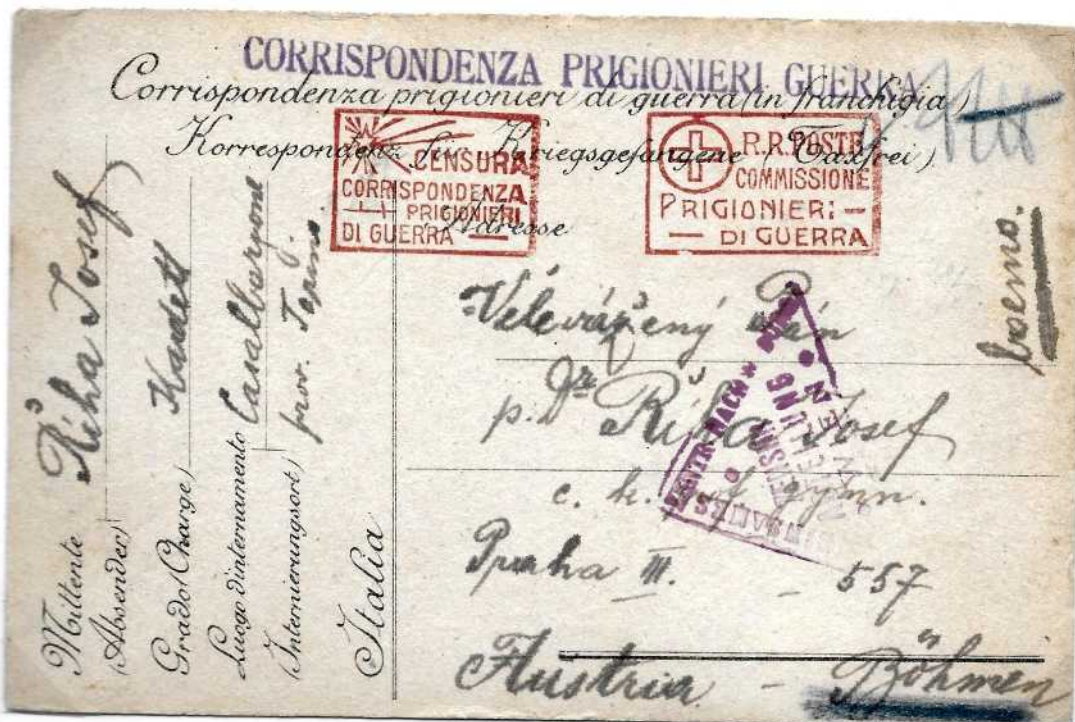 CORRISPONDENZA PRIGIONIERI GUERRA
Corrispondenza prigionieri di guerra (in franchigia)
Korrespondenz für Kriegsgefangene (Taxfrei)
CENSURA
CORRISPONDENZA
PRIGIONIERI
DI GUERRA
R.R.POSTE
COMMISSIONE
PRIGIONIERI
DI GUERRA
Adresse
boemo.
Velevážený Pán
p. Dr Říha Josef
c. k. gymn.
Praha III. 557
Austria - Böhmen
Mittente Říha Josef
(Absender)
Grado (Charge) Kadett
Luogo d'internamento Casalbergone
(Internierungsort) prov.
Italia
ZENTR. NACHW.